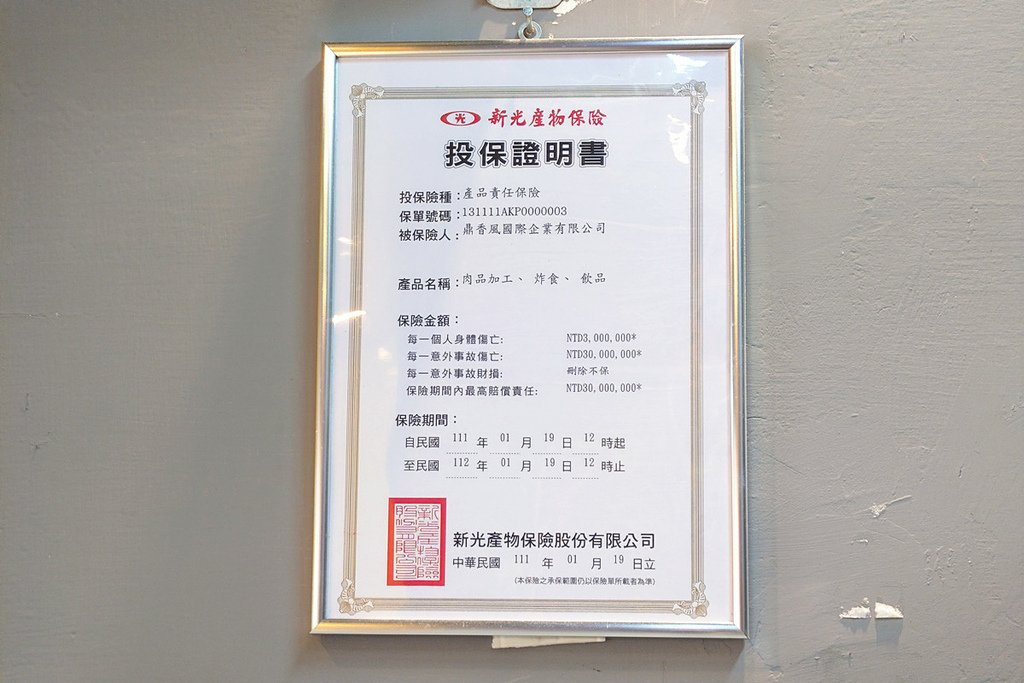 光 新光產物保險
投保證明書
投保險種：產品責任保險
保單號碼：131111AKP0000003
被保險人：鼎香風國際企業有限公司
產品名稱：肉品加工、 炸食、 飲品
保險金額：
每一個人身體傷亡: NTD3,000,000*
每一意外事故傷亡: NTD30,000,000*
每一意外事故財損: 刪除不保
保險期間內最高賠償責任: NTD30,000,000*
保險期間：
自民國 111 年 01 月 19 日 12 時起
至民國 112 年 01 月 19 日 12 時止
新光產物保險股份有限公司
中華民國 111 年 01 月 19 日立
(本保險之承保範圍仍以保險單所載者為準)